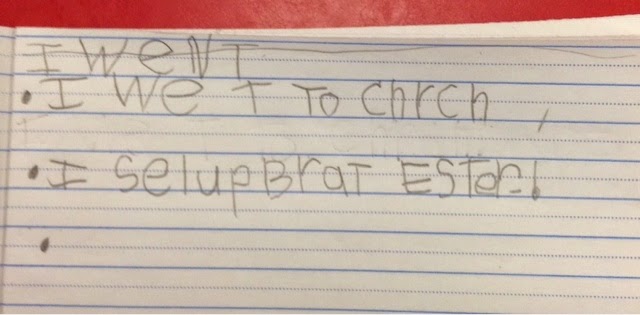 I WeNT
• I We T To Chrch ,
• I SelupBraT ESTer!
•